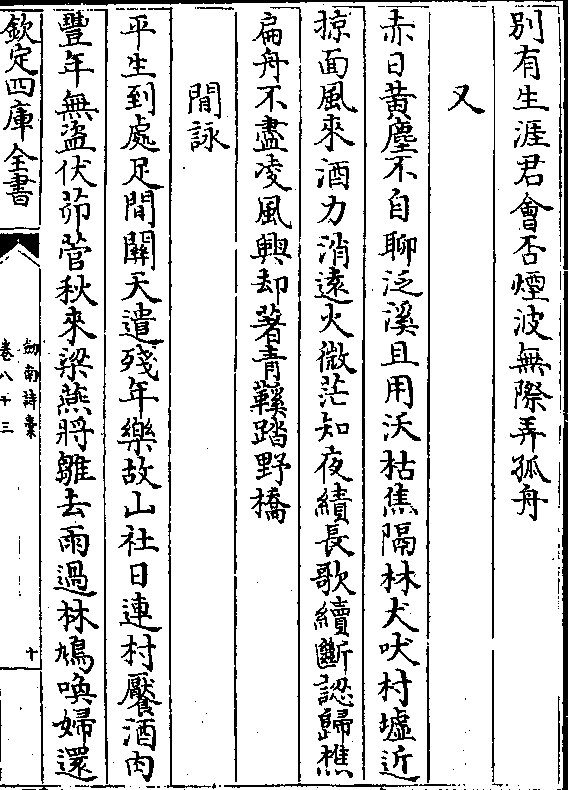 別有生涯君會否煙波無際弄孤舟
又
赤日黃塵不自聊泛溪且用沃枯焦隔林犬吠村墟近
掠面風來酒力消遠火微茫知夜績長歌續斷認歸樵
扁舟不盡凌風興却著青鞵踏野橋
閒詠
平生到處足間關天遣殘年樂故山社日連村饜酒肉
豐年無盜伏茆菅秋來梁燕將雛去雨過林鳩喚婦還
欽定四庫全書
劒南詩稾
卷八十三
十